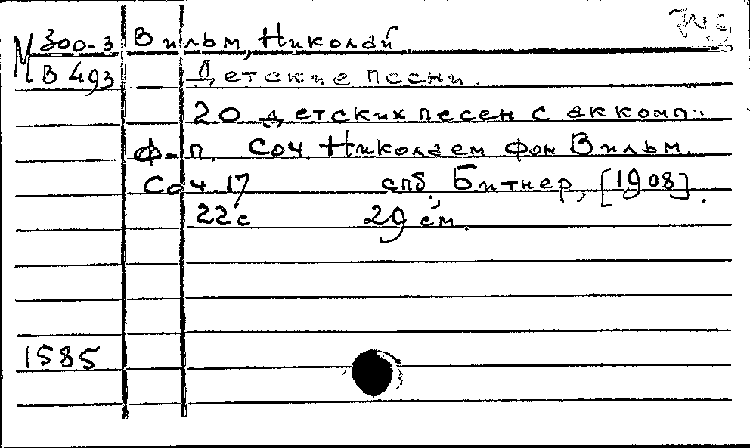 М 300-3 Вильм, Николай
В 493 Детские песни.
20 детских песен с аккомп.
ф-п. Соч. Николаем фон Вильм.
Соч. 17 спб, Битнер, [1908].
22с 29 см.
1585